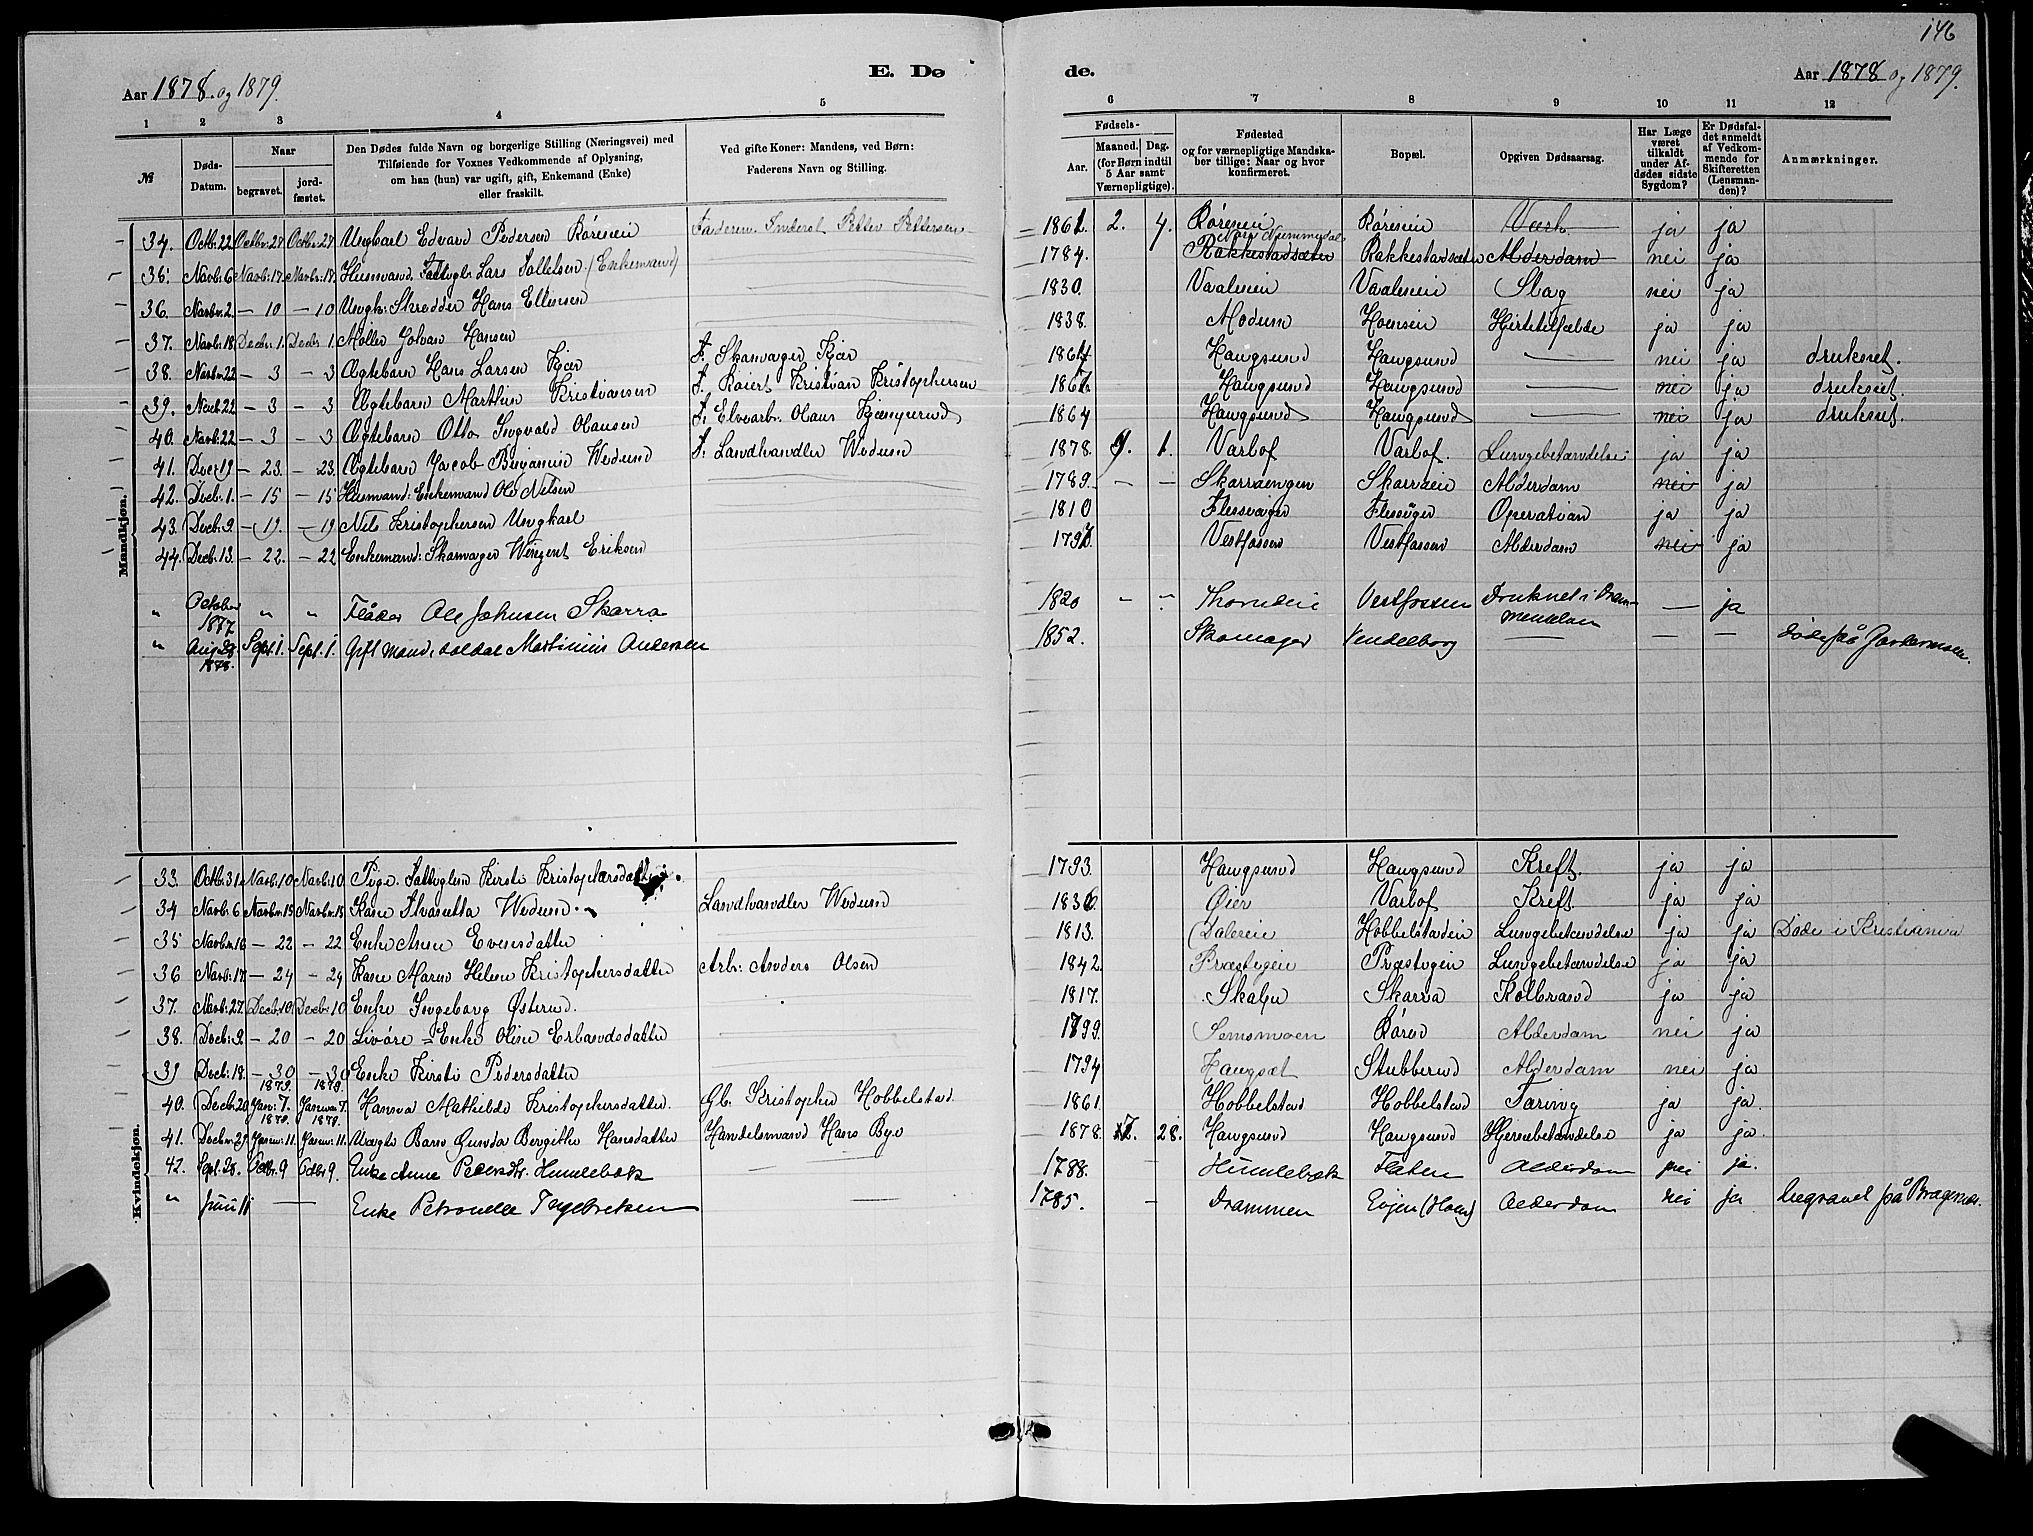 146
Aar 1878 og 1879.
E. Dø
de.
Aar 1878 og 1879.
1 2 3 4 5 6 7 8 9 10 11 12
№
Døds-Datum.
Naar
begravet.
jord-fæstet.
Den Dødes fulde Navn og borgerlige Stilling (Næringsvei) med
Tilføiende for Voxnes Vedkommende af Oplysning,
om han (hun) var ugift, gift, Enkemand (Enke)
eller fraskilt.
Ved gifte Koner: Mandens, ved Børn:
Faderens Navn og Stilling.
Fødsels-
Aar.
Maaned. Dag.
(for Børn indtil
5 Aar samt
Værnepligtige).
Fødested
og for værnepligtige Mandska-
ber tillige: Naar og hvor
konfirmeret.
Bopæl.
Opgiven Dødsaarsag.
Har Læge
været
tilkaldt
under Af-
dødes sidste
Sygdom?
Er Dødsfal-
det anmeldt
af Vedkom-
mende for
Skifteretten
(Lensman-
den)?
Anmærkninger.
Mandkjøn.
34. Octb. 22 Octbr. 27 Octbr. 27 Ungkarl Edvard Pedersen Röreneie Faderen Petter Pettersen 1861 2. 4. Röreneie Röreneie ja ja
35. Novb. 6 Novbr. 17. Novbr. 17. Husmand Lars (Enkemand) 1784. Rakkestadsæter Rakkestadsæter Alderdom nei ja
36. Novbr. 2. – 10 – 10 Ungk: Skredder Hans Ellensen 1830. Vaaleneie Vaaleneie Slag nei ja
37. Novbr. 18 Decbr. 1. Decbr. 1. Möller Hansen 1838. Modum Hoeneie ja ja
38. Novbr. 22 – 3 – 3 Ægtebarn Hans Larsen Kjær F. Skomager Kjær 1864 Haugsund Haugsund — nei ja druknet.
39. Novb. 22 – 3 – 3 Ægtebarn Marthin Kristiansen F. Kristian Kristophersen Haugsund Haugsund — nei ja druknet.
40. Novbr. 22 – 3 – 3 Ægtebarn Otto Ingvald Olausen F. Elvearb. Olaus 1864 Haugsund Haugsund — nei ja druknet.
41. Decb. 19 – 23. – 23. Ægtebarn Jacob Benjamin Wedum F. Landhandler Wedum 1878. 9. 1. Varlof Varlof. Lungebetændelse ja ja
42. Decb. 1. – 15 – 15 Husmand: Enkemand Ole Nilsen 1789. – – Skarraengen Skarraeie Alderdom nei ja
43. Decb. 9. – 19. – 19 Nils Kristophersen Ungkarl 1810 Operation ja ja
44. Decb. 13. – 22. – 22 Enkemand: Skomager Wingent Eriksen Vestfossen Vestfossen Alderdom nei ja
" October 1877 " " Fløder Ole Johnsen Skarra 1820 – – Thorudeie Vestfossen Druknet i Dram-
menselven — ja
" Aug. 28 1878. Sept. 1. Sept. 1. Gift mand, soldat Martinius Andersen 1852. Skomager Vendelborg — — — døde på Gardermoen.
Kvindekjøn.
33. Octb. 31 Novb. 10 Novb. 10 Pige. Kirsti Kristophersdatter. 1793. Haugsund Haugsund Kreft. ja ja
34 Novb. 6 Novbr. 15 Novbr. 15 Kone Wedum. Landhandler Wedum 1836 Øier Varlof Kreft ja ja
35 Novb. 16 – 22 – 22 Enke Anne Evensdatter 1813. Daleeie Hobbelstadeie Lungebetændelse ja ja Døde i Kristiania
36 Novb. 17. – 24 – 24 Kone Maren Helene Kristophersdatter Arb: Anders Olsen 1842. Præstegeie Præstegeie Lungebetændelse ja ja
37. Novb. 27. Decb. 10 Decbr. 10 Enke Ingeborg Østerud. 1817. Skarra Koldbrand ja ja
38. Decb. 9. – 20 – 20 Livöre = Enke Oline Erlandsdatter 1799. Semsmoen Alderdom nei ja
39 Decb. 18. – 30 – 30 Enke Kirsti Pedersdatter 1794 Stubberud Alderdom nei ja
40. Decb. 20 1879. Jan: 7. 1879. Januar 7. Hansea Mathilde Kristophersdatter. Gb. Kristopher Hobbelstad. 1861. Hobbelstad Hobbelstad Tæring ja ja.
41. Decbr. 29 1879. Januar 11. 1879. Januar 11. Uægte Barn Gunda Bergitte Hansdatter Handelsmand Hans Bye 1878. 12. 28. Haugsund Haugsund Hjernebetændelse ja ja.
42. Sept. 28. Octbr. 9 Octbr. 9. Enke Anne Pedersdtr. Humlebæk — 1788. – Humlebæk Flaten Alderdom nei ja.
" Juni 11 — Enke Petronelle Ingebretsen — 1785. – Drammen Eijen (Hoen) Alderdom nei ja begravet på Bragernæs.